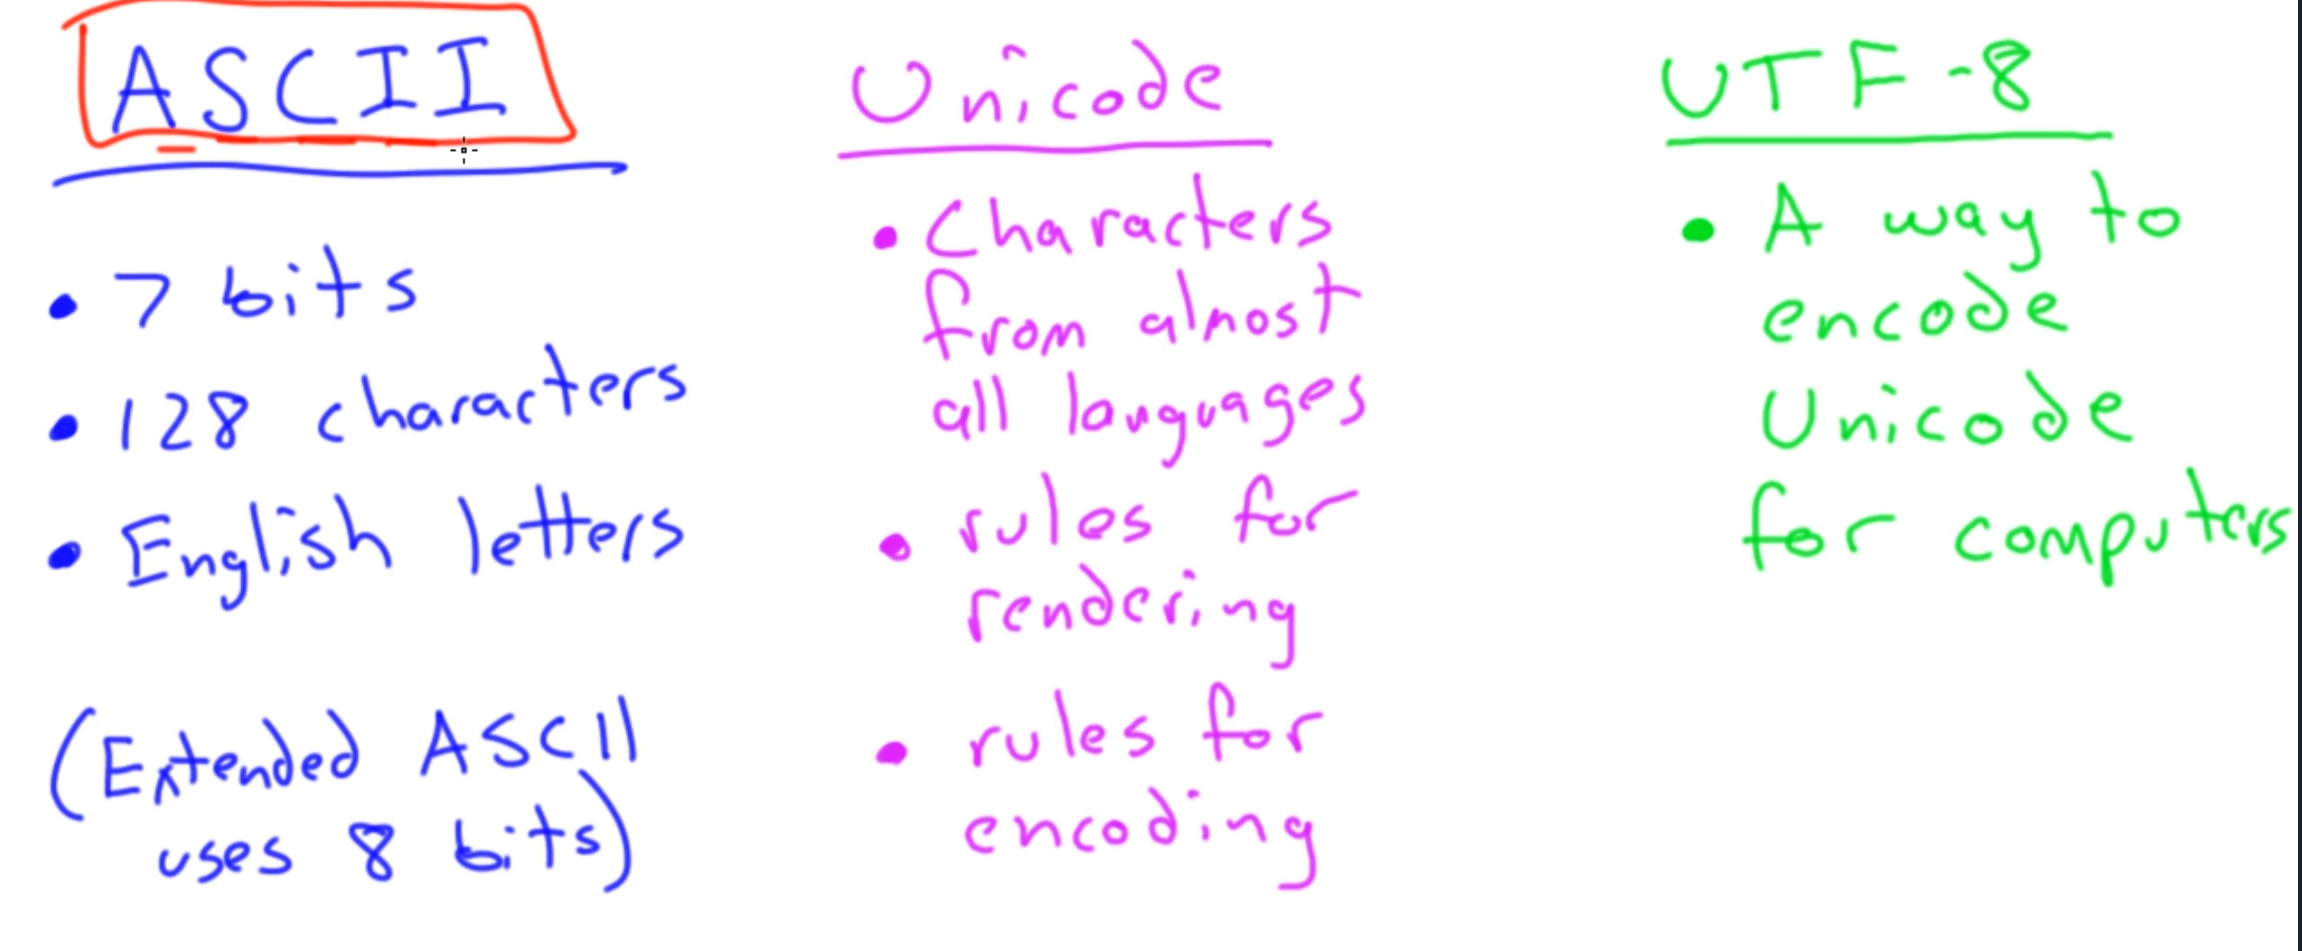 ASCII
• 7 bits
• 128 characters
• English letters
(Extended ASCII
uses 8 bits)
Unicode
• Characters
from almost
all languages
• rules for
rendering
• rules for
encoding
UTF-8
• A way to
encode
Unicode
for computers